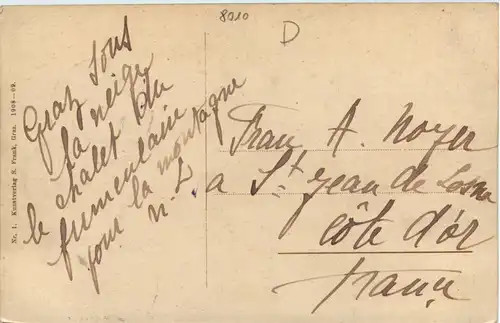 8010
D
Graz sous
la neige
le chalet du
funiculaire
pour la montagne
n. L
Frau A. Noyer
a St Jean de Losne
Côte d'or
France
Nr. 1. Kunstverlag S. Frank, Graz. 1908-09.